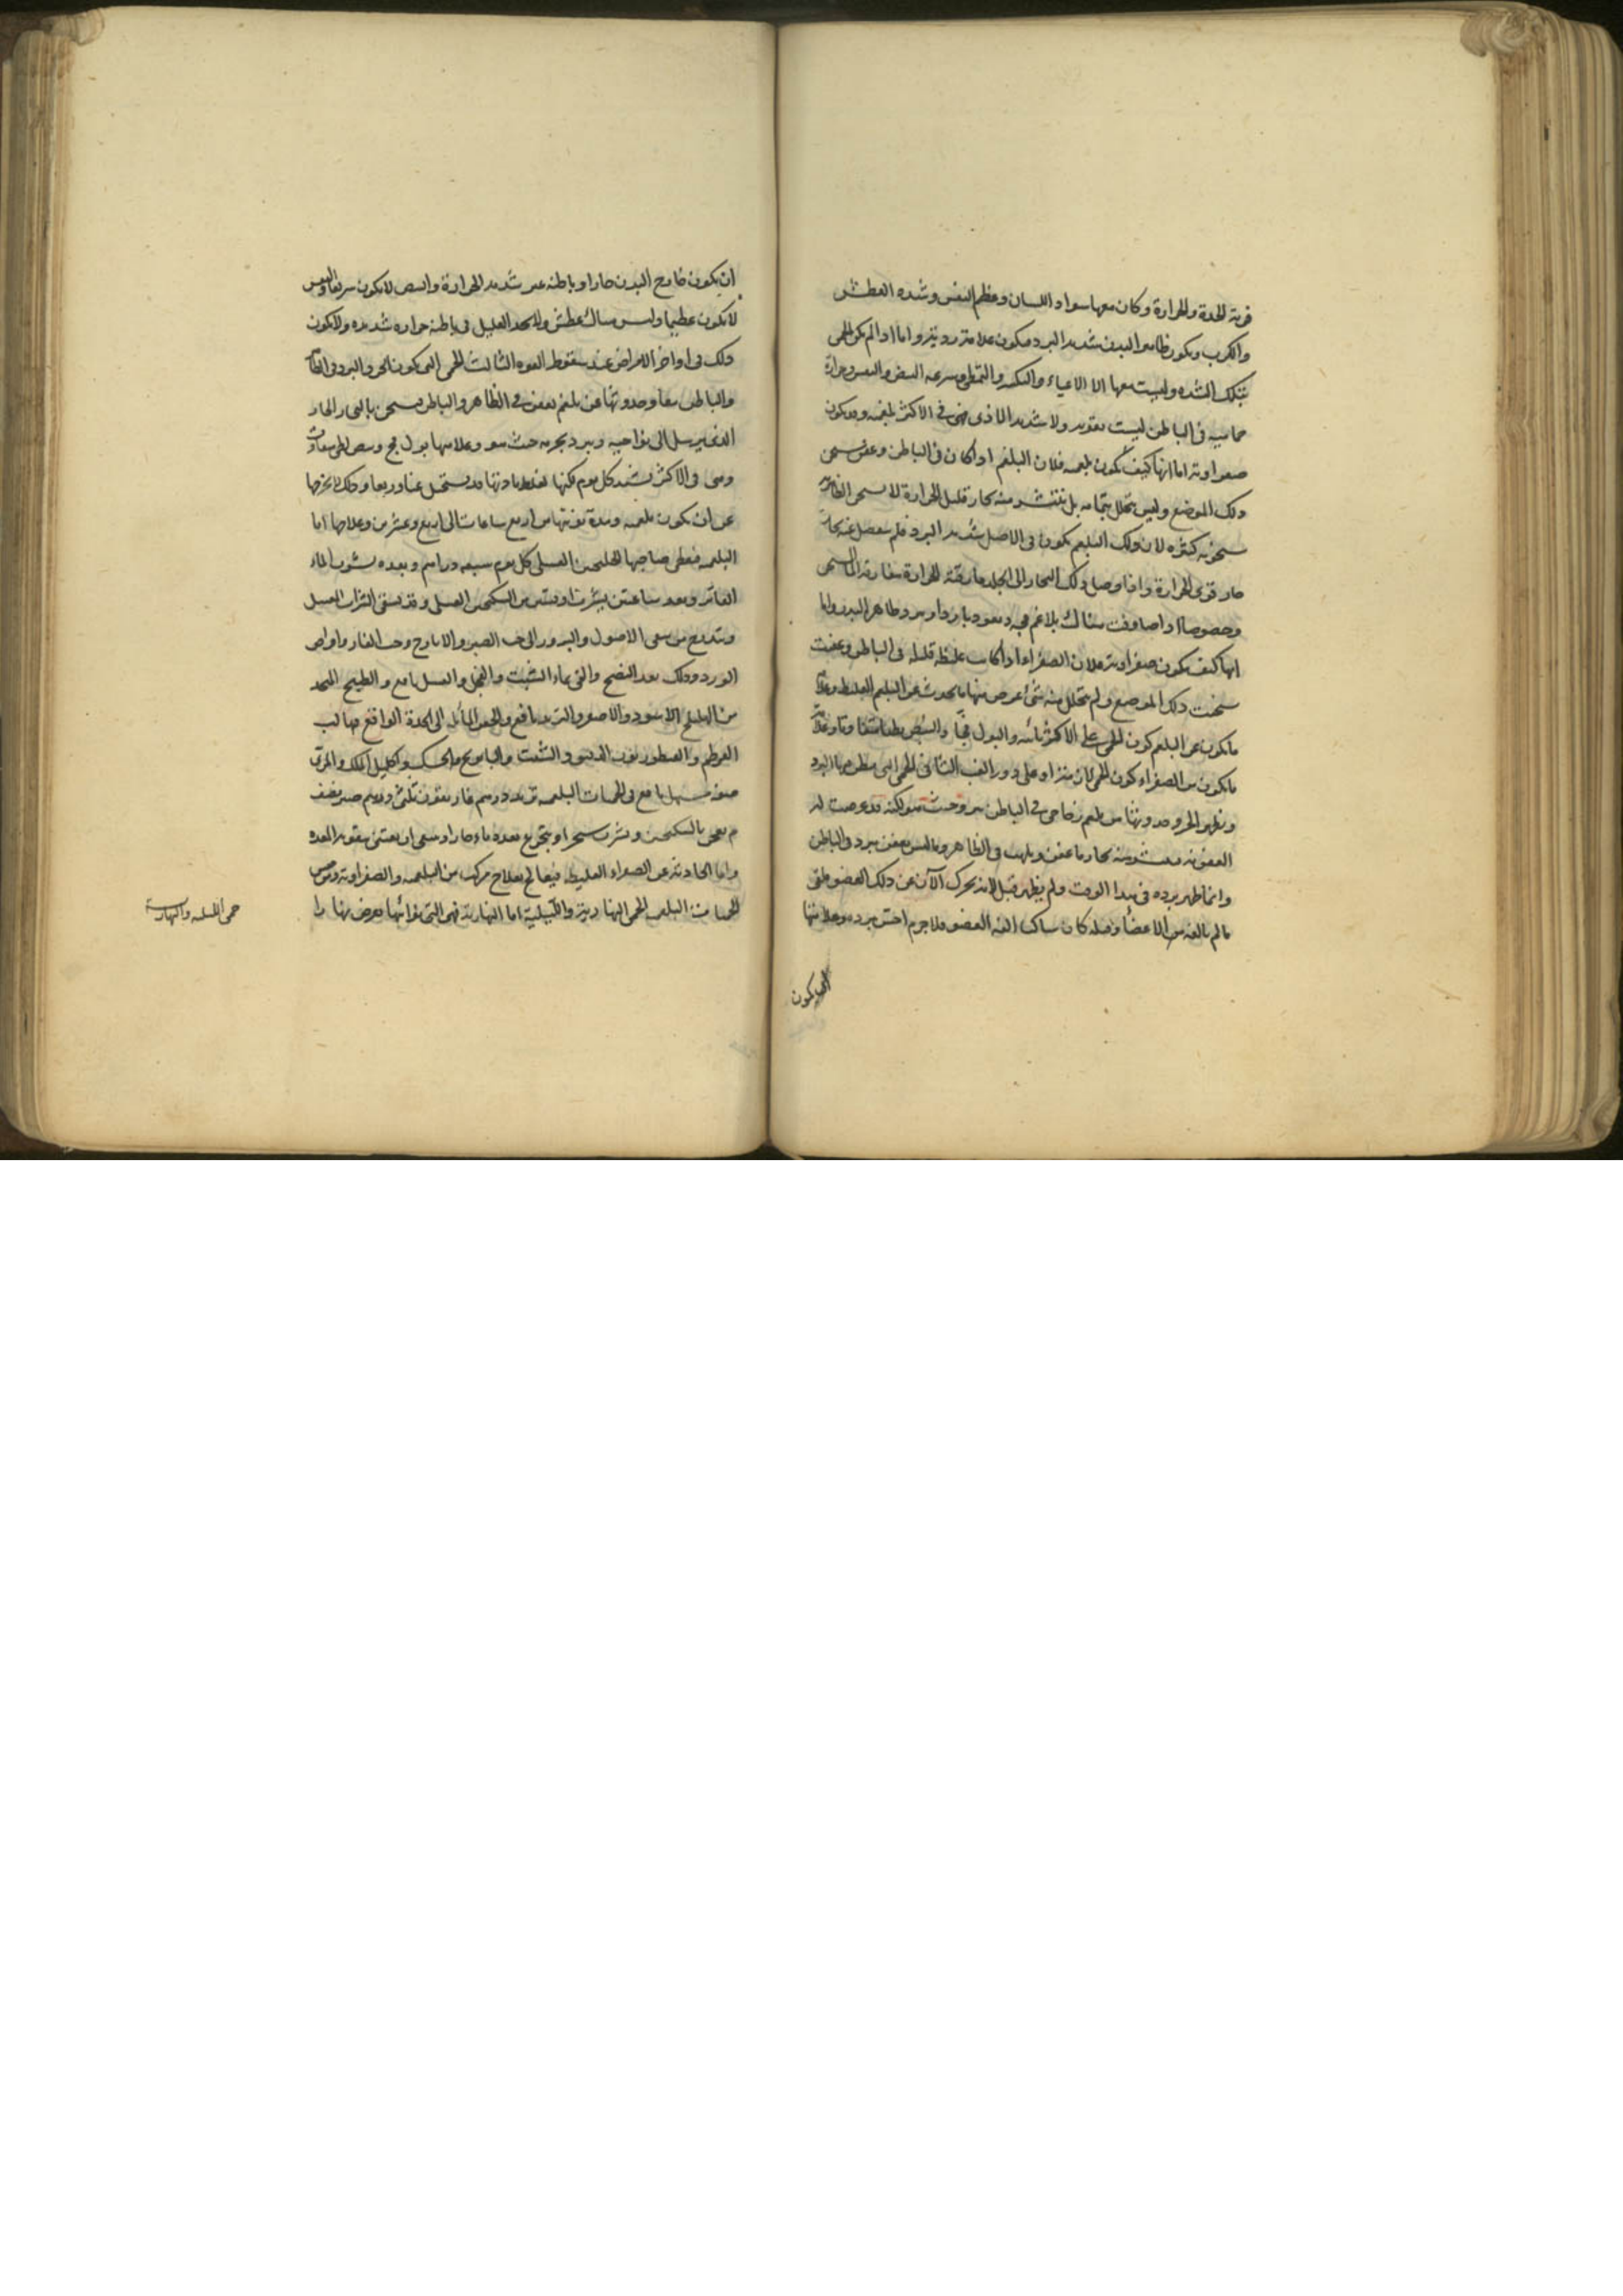 قوية الحدة والحرارة وكان معها سواد اللسان وعظم النفس وشدة العطش
والكرب ويكون ظاهر البدن شديد البرد فيكون علامة ردية واما اذا لم يكن الحمى
بتلك الشدة وليست معها الا الاعياء والتكسر والتمطى وسرعة النبض والنفس وحرارة
فى الباطن ليست بقوية ولا شديد الاذى فهى فى الاكثر بلغمية وقد يكون
صفراوية اما انها كيف تكون بلغمية فلان البلغم اذا كان فى الباطن وعفن سخن
ذلك الموضع وليس يتحلل بتمامه بل ينتشر منه بخار قليل الحرارة لا يسخن الظاهر
سخونة كثيرة لان ذلك البلغم يكون فى الاصل شديد البرد فلم ينفصل عنه بخار
حار قوى الحرارة واذا وصل ذلك البخار الى الجلد فارقته الحرارة
وخصوصا اذا صادفت هناك بلاغم فجة فيعود باردا ويبرد ظاهر البدن واما
انها كيف تكون صفراوية فلان الصفراء اذا كانت غليظة قليلة فى الباطن وعفنت
سخنت ذلك الموضع ولم يتحلل منه شئ عرض منها ما يحدث عن البلغم الغليظ وعلامة
ما يكون عن البلغم كون الحمى على الاكثر نائبة والبول فجا والنبض بطيئا متفاوتا وعلامة
ما يكون من الصفراء كون الحمى على دور الغب الثانى الحمى التى يبطن فيها البرد
ويظهر الحر وحدوثها من بلغم زجاجى فى الباطن يبرد حيث هو لكنه قد عرضت له
العفونة فينتشر منه بخار ما عفن ويلهب فى الظاهر وما ليس يعفن يبرد فى الباطن
وانما ظهر برده فى هذا الوقت ولم يظهر قبل لانه تحرك الآن عن ذلك العضو فلقى
ما لم يالفه من الاعضاء وقبله كان ساكنا الفه العضو فلا جرم احس ببرده وعلامتها
ان يكون
ان يكون خارج البدن حارا وباطنه غير شديد الحرارة والنبض لا يكون سريعا والنفس
لا يكون عظيما وليس هناك عطش ولا يجد العليل فى باطنه حرارة شديدة ولا يكون
ذلك فى اواخر الامراض عند سقوط القوة الثالث الحمى التى يكون الحر والبرد فى الظاهر
والباطن معا وحدوثها عن بلغم يعفن فى الظاهر والباطن فيسخن بالبخار الحار
الذى يرسل الى نواحيه ويبرد بجرمه حيث هو وعلامتها بول فج ونبض بطئ متفاوت
وهى فى الاكثر تشتد كل يوم لكنها لغلظ مادتها قد يستحيل غبا وربعا وذلك لا يخرجها
عن ان يكون بلغمية ومدة نوبتها من اربع ساعات الى اربع وعشرين وعلاجها اما
البلغمية فيعطى صاحبها الجلنجبين العسلى كل يوم سبعة دراهم وبعده يشرب الماء
الفاتر وبعد ساعتين يشرب اوقيتين من السكنجبين العسلى وقد يسقى الشراب العسل
ويتدرج من سقى الاصول والبزور الى حب الصبر والايارج وحب الغار واقراص
الورد وذلك بعد النضج والقئ بماء الشبت والفجل والعسل نافع والطبيخ المتخذ
من الهليلج الاسود والاصفر والتربد نافع والحقن المائلة الى الحدة الواقع فيها لب
القرطم والقنطوريون الدقيق والشبت والبابونج والحسك واكليل الملك والمرى
صفة مسهل نافع فى الحميات البلغمية تربد درهم غاريقون ثلثى درهم صبر نصف
درهم يعجن بالسكنجبين ويشرب سحرا ويتجرع بعده ماء حارا وينبغى ان يعتنى بتقوية المعدة
واما الحادثة عن الصفراء الغليظة فيعالج بعلاج مركب من البلغمية والصفراوية ومن
الحميات البلغمية الحمى النهارية والليلية اما النهارية فهى التى نوائبها تعرض نهارا
حمى الليلية والنهارية